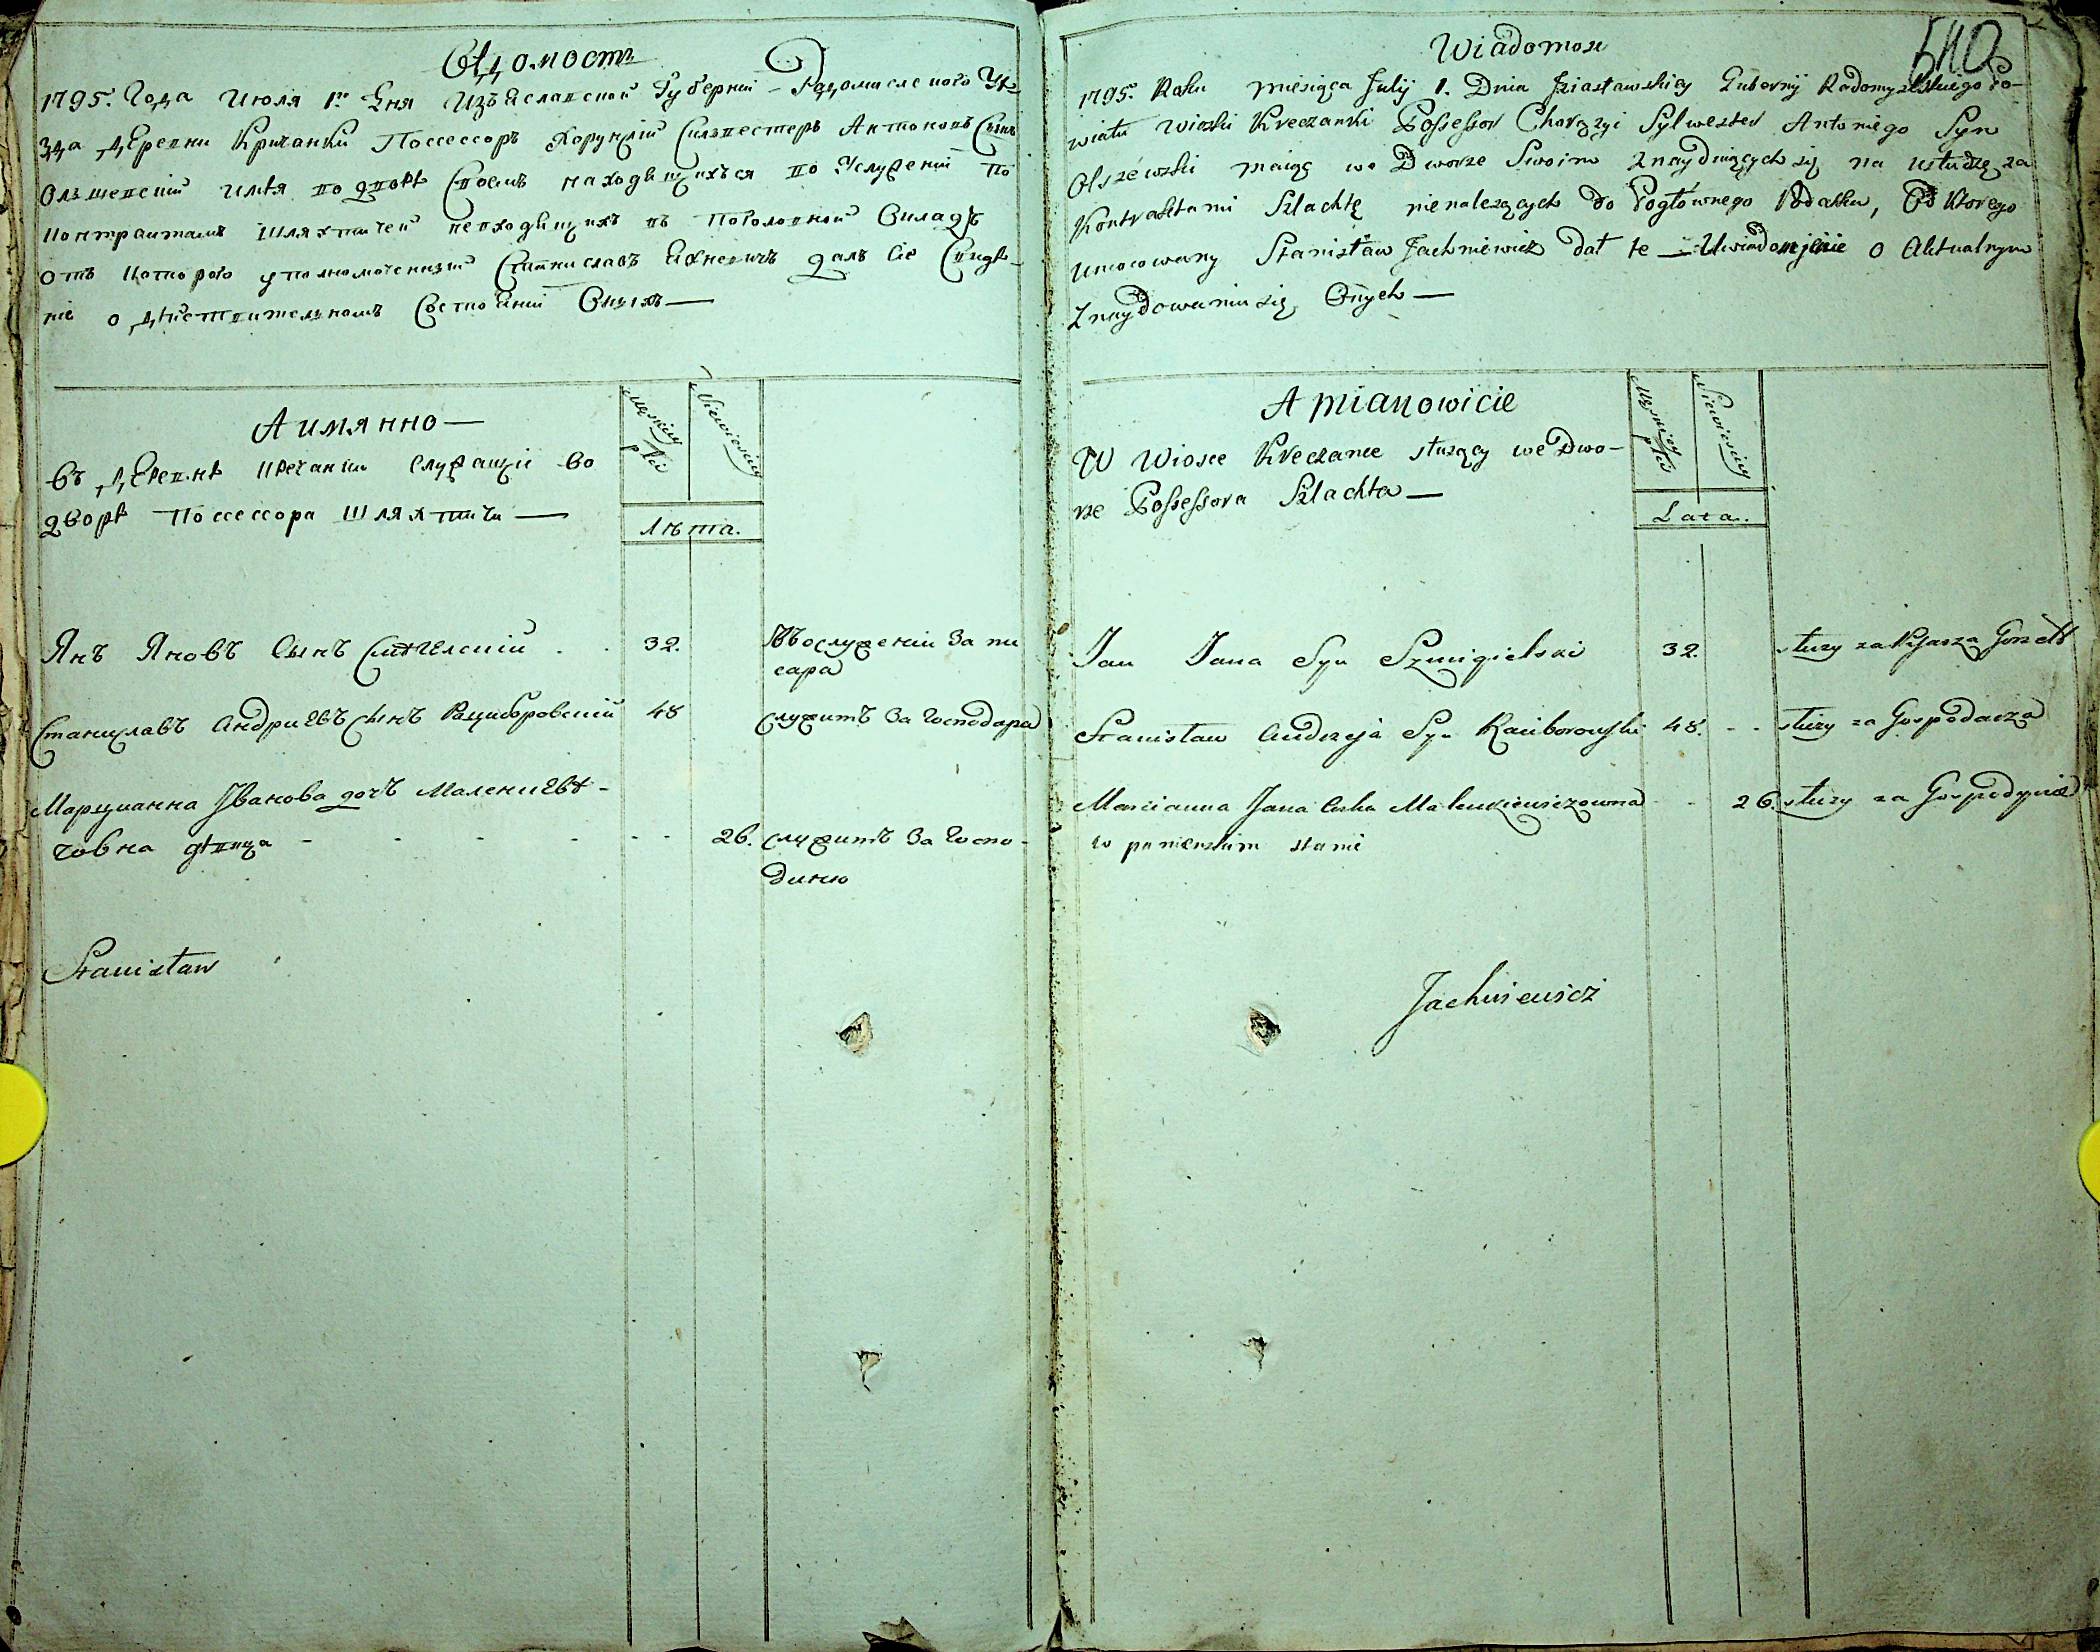 Вѣдомость
1795. Года Июля 1го Дня Изъяславской Губерніи Радомисленого Уѣ-
зда Деревни Кричанки Поссессоръ Хорунжій Сильвестеръ Антоновъ Сынъ
Ольшевскій имѣя во дворѣ своемъ находящихъся во услуженіи по
контрактамъ шляхтичей невходящихъ въ поголовной окладъ
отъ которого уполномоченный Станиславъ Яхневичъ далъ сіе свидѣ-
ніе о дѣйствительномъ состояніи оныхъ —
А имянно —
Męskiey płci
Niewieskiey
въ деревнѣ Кречанки служащіе во
дворѣ Поссессора шляхтичи —
Лѣта.
Янъ Яновъ Сынъ Смѣгелскій . . 32. въ послуженіи за пи
сара
Станиславъ Андриевъ сынъ Рациборовскій 48 служитъ за господара
Марцианна Іванова дочъ Маленкиевѣ-
човна дѣвица - - - - - - 26. служитъ за госпо-
диню
Stanisław
Wiadomosc
540
1795. Roku miesiąca Julij 1. Dnia Iziasławskiey Gubernij Radomyslskiego Po-
wiatu Wioski Kreczanki Possessor Chorązyi Sylwester Antoniego Syn
Olszewski maiąc we Dworze Swoim znayduiących się na usłudze za
Kontraktami Szlachtę nienalezących do Pogłównego Podatku, Od Ktorego
umocowany Stanisław Jachniewicz dał te — Uwiadomjenie o Aktualnym
znaydowaniu się Onych —
A mianowicie
Męskiey płci
Niewieskiey
W Wiosce Kreczance słuzący we Dwo-
rze Possessora Szlachta —
Lata.
Jan Jana Syn Szmigielski 32. słuzy za Pisarza
Stanisław Andrzeja Syn Raciborowski 48. - - słuzy za Gospodarza
Marcianna Jana Corka Malenkiewiczowna - - 26. słuzy za Gospodynią
w panienskim stanie
Jachniewicz